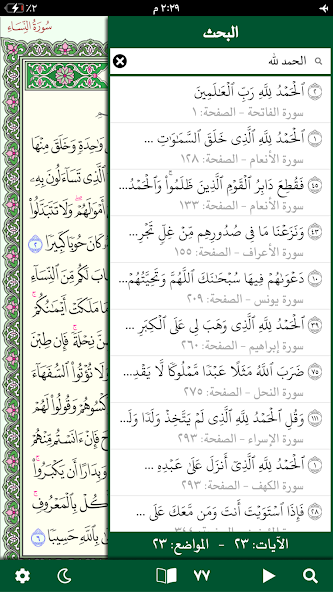 ٪٢
٢:٢٩ م
سُورَةُ النِّسَاءِ
البحث
الحمد لله
٢ ٱلۡحَمۡدُ لِلَّهِ رَبِّ ٱلۡعَٰلَمِينَ
سورة الفاتحة - الصفحة: ١
١ ٱلۡحَمۡدُ لِلَّهِ ٱلَّذِي خَلَقَ ٱلسَّمَٰوَٰتِ ...
سورة الأنعام - الصفحة: ١٢٨
٤٥ فَقُطِعَ دَابِرُ ٱلۡقَوۡمِ ٱلَّذِينَ ظَلَمُواْۚ وَٱلۡحَمۡدُ...
سورة الأنعام - الصفحة: ١٣٣
٤٣ وَنَزَعۡنَا مَا فِي صُدُورِهِم مِّنۡ غِلّٖ تَجۡرِ...
سورة الأعراف - الصفحة: ١٥٥
١٠ دَعۡوَىٰهُمۡ فِيهَا سُبۡحَٰنَكَ ٱللَّهُمَّ وَتَحِيَّتُهُمۡ...
سورة يونس - الصفحة: ٢٠٩
٣٩ ٱلۡحَمۡدُ لِلَّهِ ٱلَّذِي وَهَبَ لِي عَلَى ٱلۡكِبَرِ ...
سورة إبراهيم - الصفحة: ٢٦٠
٧٥ ضَرَبَ ٱللَّهُ مَثَلًا عَبۡدٗا مَّمۡلُوكٗا لَّا يَقۡدِ...
سورة النحل - الصفحة: ٢٧٥
١١١ وَقُلِ ٱلۡحَمۡدُ لِلَّهِ ٱلَّذِي لَمۡ يَتَّخِذۡ وَلَدٗا وَلَ...
سورة الإسراء - الصفحة: ٢٩٣
١ ٱلۡحَمۡدُ لِلَّهِ ٱلَّذِيٓ أَنزَلَ عَلَىٰ عَبۡدِهِ ...
سورة الكهف - الصفحة: ٢٩٣
٢٨ فَإِذَا ٱسۡتَوَيۡتَ أَنتَ وَمَن مَّعَكَ عَلَى ...
الآيات: ٢٣ - المواضع: ٢٣
وَٰحِدَةٖ وَخَلَقَ مِنۡهَا
ٱلَّذِي تَسَآءَلُونَ بِهِۦ
أَمۡوَٰلَهُمۡۖ وَلَا تَتَبَدَّلُواْ
كَانَ حُوبٗا كَبِيرٗا ٢
لَكُم مِّنَ ٱلنِّسَآءِ
مَا مَلَكَتۡ أَيۡمَٰنُكُمۡۚ
نِحۡلَةٗۚ فَإِن طِبۡنَ
وَلَا تُؤۡتُواْ ٱلسُّفَهَآءَ
ٱكۡسُوهُمۡ وَقُولُواْ لَهُمۡ
فَإِنۡ ءَانَسۡتُم مِّنۡهُمۡ
وَبِدَارًا أَن يَكۡبَرُواْۚ
كُلۡ بِٱلۡمَعۡرُوفِۚ
بِٱللَّهِ حَسِيبٗا ٦
٧٧